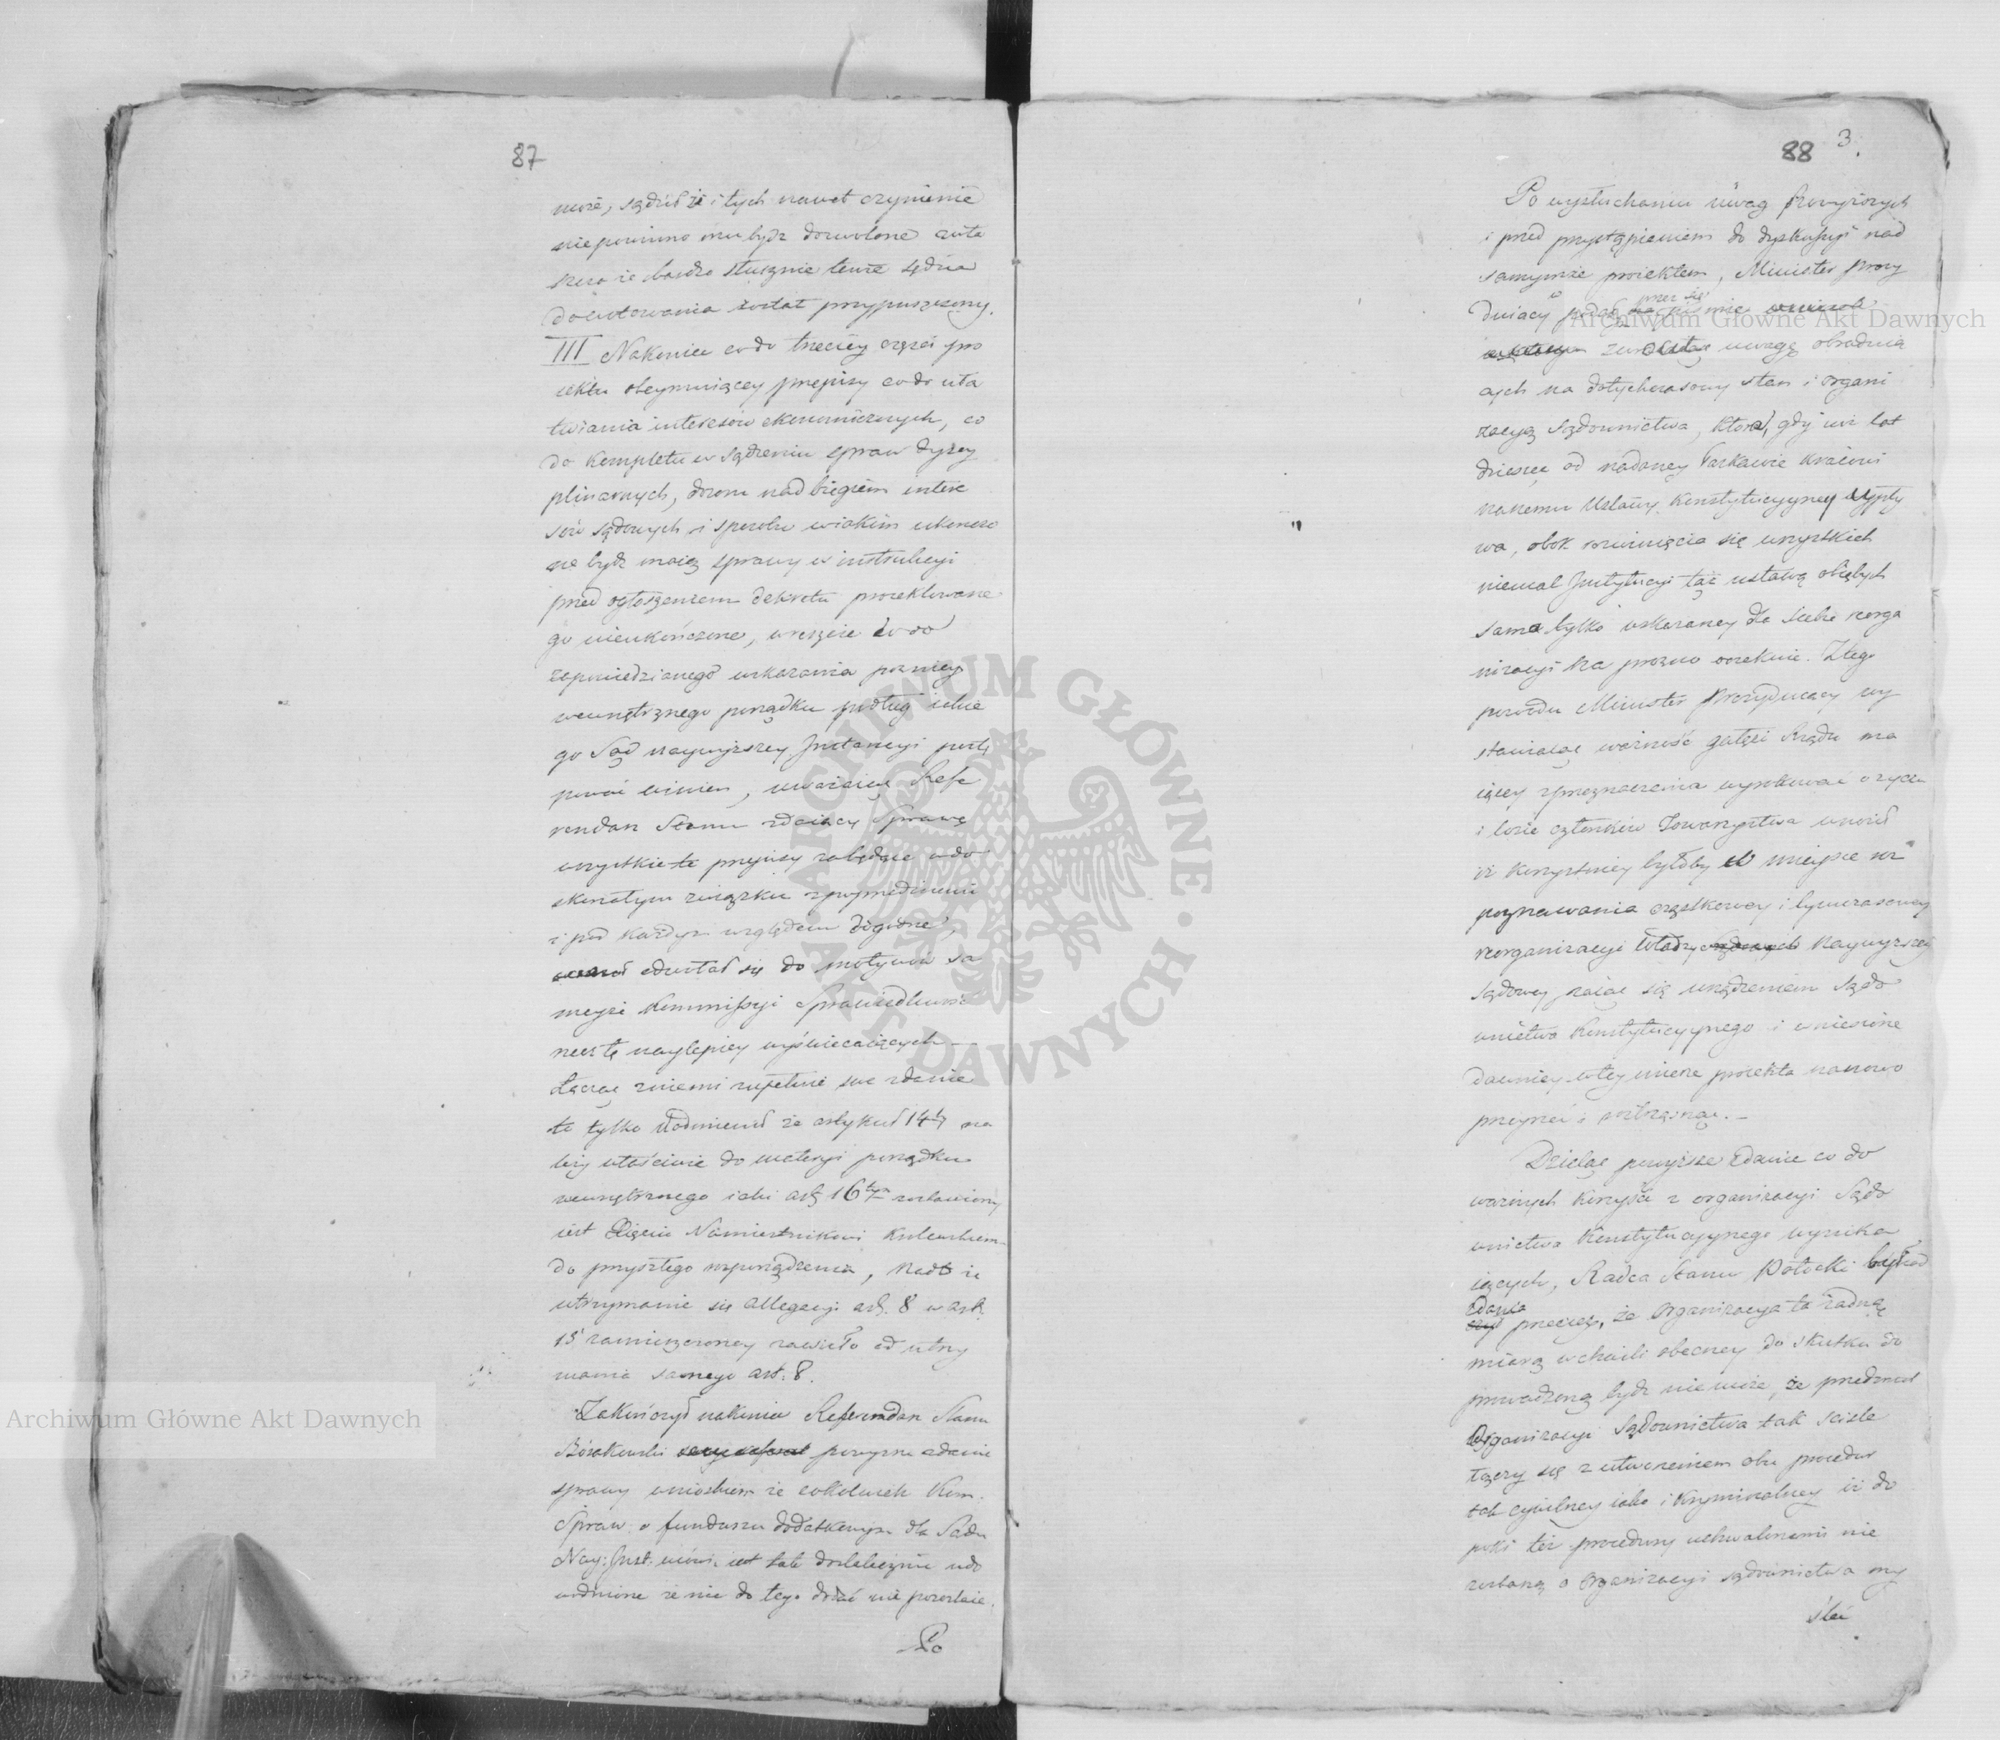 87
może, sądził że i tych nawet czynienie
nie powinno mu bydź dozwolone a nto
że bardzo słusznie tenże sędzia
do wotowania został przypuszczony.
III Nakoniec co do trzeciey części pro
iektu obeymuiącey przepisy co do uła
twiania interesów ekonomicznych, co
do kompletu w sądzeniu spraw dyscy
plinarnych, dozoru nad biegiem intere
sów sądowych i sposobu w iakim ukończo
ne bydź maią sprawy w instrukcyi
przed ogłoszeniem dekretu proiektowane
go nieukończone, wreszcie co do
zapowiedzianego wskazania pozniey
wewnętrznego porządku podług które
go Sąd naywyższey Instancyi postę
pować winien, uważaiąc Refe
rendarz Stanu zdaiący Sprawę
wszystkie te przepisy za będące w do
skonałym związku z poprzedniemi
i pod każdym względem dogodne,
odwołał się do motywów sa
meyże Kommissyi Sprawiedliwości
rzecz tę naylepiey wyświecaiących –
Łącząc z niemi zupełnie swe zdanie
to tylko nadmienił że artykuł 14ty na
leży właściwie do materyi porządku
wewnętrznego iaki art 16tym zostawiony
iest Xięciu Namiestnikowi Królewskiem
do przyszłego rozporządzenia, nadto że
utrzymanie się allegacyi art. 8 w art.
15 zamieszczoney zawisło od utrzy
mania samego art. 8.
Zakończył nakoniec Referendarz Stanu
powyższe zdanie
sprawy wnioskiem że cokolwiek Kom.
Spraw. o funduszu dodatkowym dla Sądu
Nay: Inst. mówi, iest tak dostatecznie udo
wodnione że nic do tego dodać nie pozostaie.
Po
88 3.
Po wysłuchaniu uwag powyższych
i przed przystąpieniem do dyskussyi nad
samymże proiektem, Minister Prezy
duiący
uwagę obraduią
cych na dotychczasowy stan i organi
zacyą Sądownictwa, która, gdy iuż lat
dziesięć od nadaney łaskawie kraiowi
naszemu Ustawy Konstytucyyney upły
wa, obok rozwinięcia się wszystkich
niemal Instytucyi tąż ustawą obiętych
sama tylko wskazaney dla siebie reorga
nizacyi na prożno oczekuie. Z tego
powodu Minister Prezyduiący wy
stawiaiąc ważność gałęzi Rządu ma
iącey z przeznaczenia wyrokować o życiu
i losie członków Towarzystwa wnosił
iż korzystniey byłoby w mieysce roz
poznawania cząstkowey i tymczasowey
reorganizacyi Władzy Naywyższey
Sądowey zaiąć się urządzeniem Sądo
wnictwa Konstytucyynego i wniesione
dawniey w tey mierze proiekta nanowo
przeyrzeć i roztrząsnąć. –
Dzieląc powyższe zdanie co do
ważnych korzyści z organizacyi Sądo
wnictwa Konstytucyynego wynika
iących, Radca Stanu Potocki był
zdania przecież, że organizacya ta żadną
miarą w chwili obecney do skutku do
prowadzoną bydź nie może, że przedmiot
Organizacyi Sądownictwa tak ściśle
łączy się z utworzeniem obu procedur
tak cywilney iako i kryminalney iż do
póki też procedury uchwalonemi nie
zostaną o organizacyi sądownictwa my
śleć
Archiwum Główne Akt Dawnych
Archiwum Główne Akt Dawnych
ARCHIWUM GŁÓWNE AKT DAWNYCH